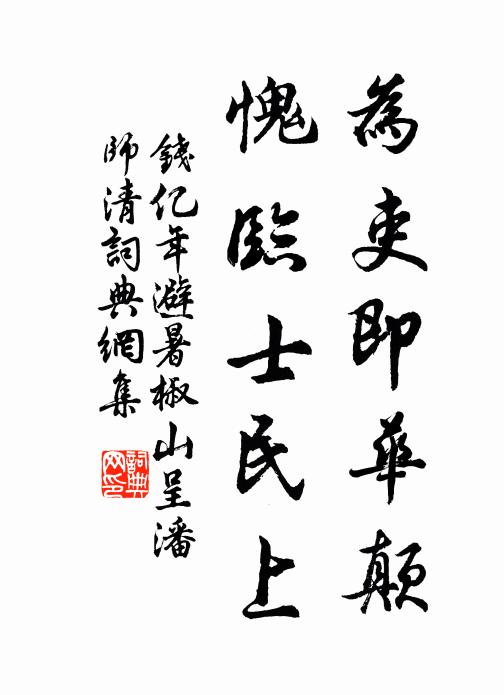 為吏即華顛
愧臨士民上
錢亿年避暑椒山呈潘
師清詞典網集
詞典
网印